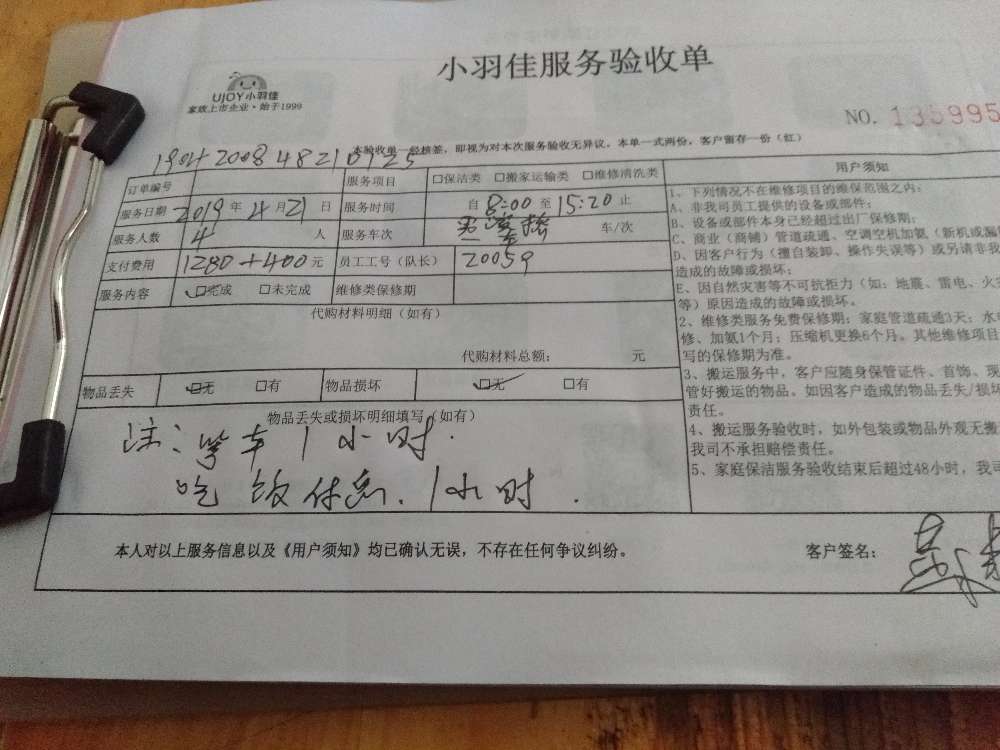 小羽佳服务验收单
UJOY小羽佳
家政上市企业·始于1999
NO. 135995
本验收单一经核签,即视为对本次服务验收无异议,本单一式两份,客户留存一份(红)
订单编号
服务项目 □保洁类 □搬家运输类 □维修清洗类
服务日期 2019 年 4 月 21 日 服务时间 自 8:00 至 15:20 止
服务人数 4 人 服务车次 车/次
支付费用 1280+400 元 员工工号(队长) 20059
服务内容 ☑完成 □未完成 维修类保修期
代购材料明细(如有)
代购材料总额: 元
物品丢失 ☑无 □有 物品损坏 ☑无 □有
物品丢失或损坏明细填写(如有)
注:等车1小时.
吃饭休息.1小时.
用户须知
1、下列情况不在维修项目的维保范围之内:
A、非我司员工提供的设备或部件;
B、设备或部件本身已经超过出厂保修期;
C、商业(商铺)管道疏通、空调空机加氨(新机或漏
D、因客户行为(擅自装卸、操作失误等)或另请非我
造成的故障或损坏;
E、因自然灾害等不可抗拒力(如:地震、雷电、火
等)原因造成的故障或损坏。
2、维修类服务免费保修期:家庭管道疏通3天;水
修、加氨1个月;压缩机更换6个月。其他维修项目
写的保修期为准。
3、搬运服务中,客户应随身保管证件、首饰、现
管好搬运的物品。如因客户造成的物品丢失/损
责任。
4、搬运服务验收时,如外包装或物品外观无
我司不承担赔偿责任。
5、家庭保洁服务验收结束后超过48小时,我司
本人对以上服务信息以及《用户须知》均已确认无误,不存在任何争议纠纷。
客户签名: